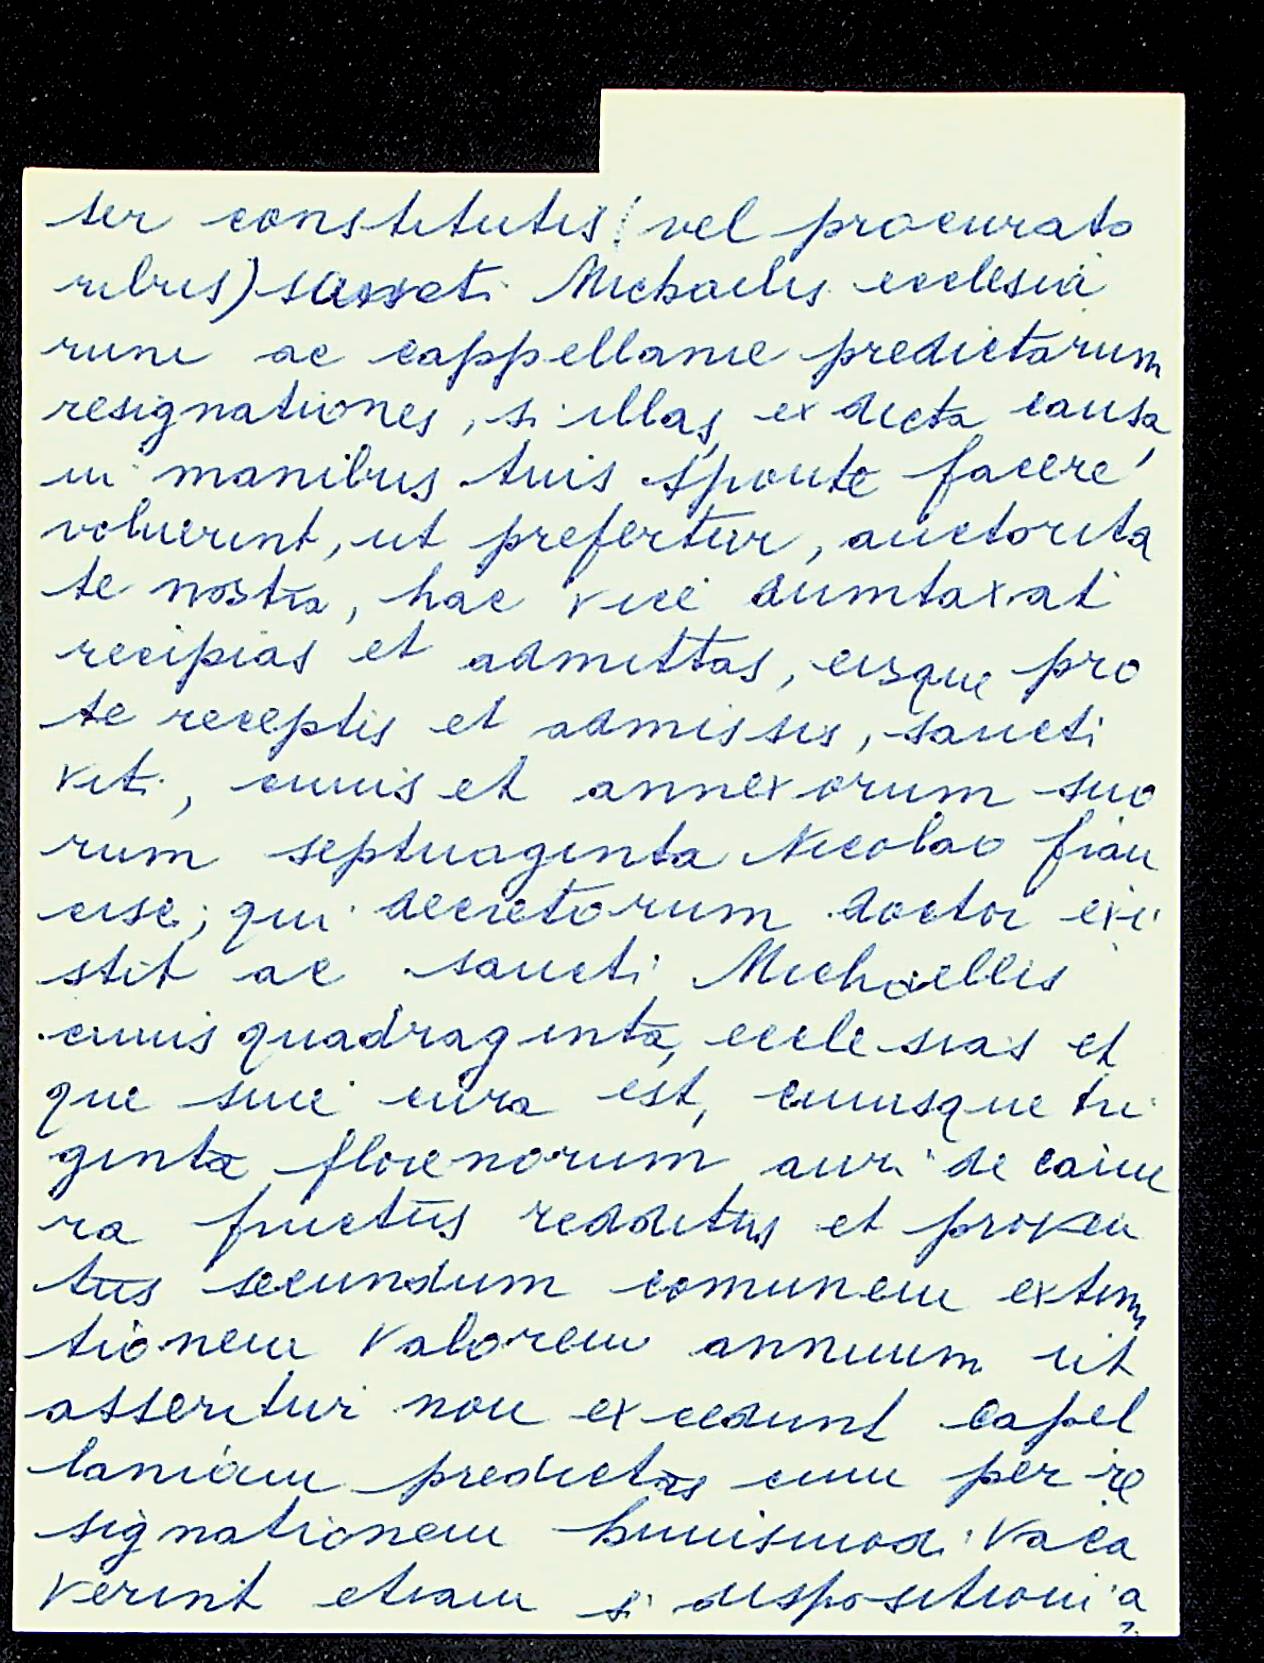 ter constitutis (vel procurato
ribus) sancti Michaelis ecclesia
rum ac cappellanie predictarum
resignationes, si illas ex dicta causa
in manibus tuis sponte facere
voluerint, ut prefertur, auctorita
te nostra, hac vice dumtaxat
recipias et admittas, eisque pro
te receptis et admissis, sancti
viti, cuius et annexorum suo
rum septuaginta Nicolao
qui decretorum doctor exi
stit ac sancti Michaellis
cuius quadraginta, ecclesias et
que sine cura est, cuiusque tri
ginta florenorum auri de came
ra fructus redditus et proven
tus secundum comunem extima
tionem valorem annuum ut
asseritur non excedunt capel
laniam predictas cum per re
signationem huiusmodi vaca
verint etiam si dispositioni a